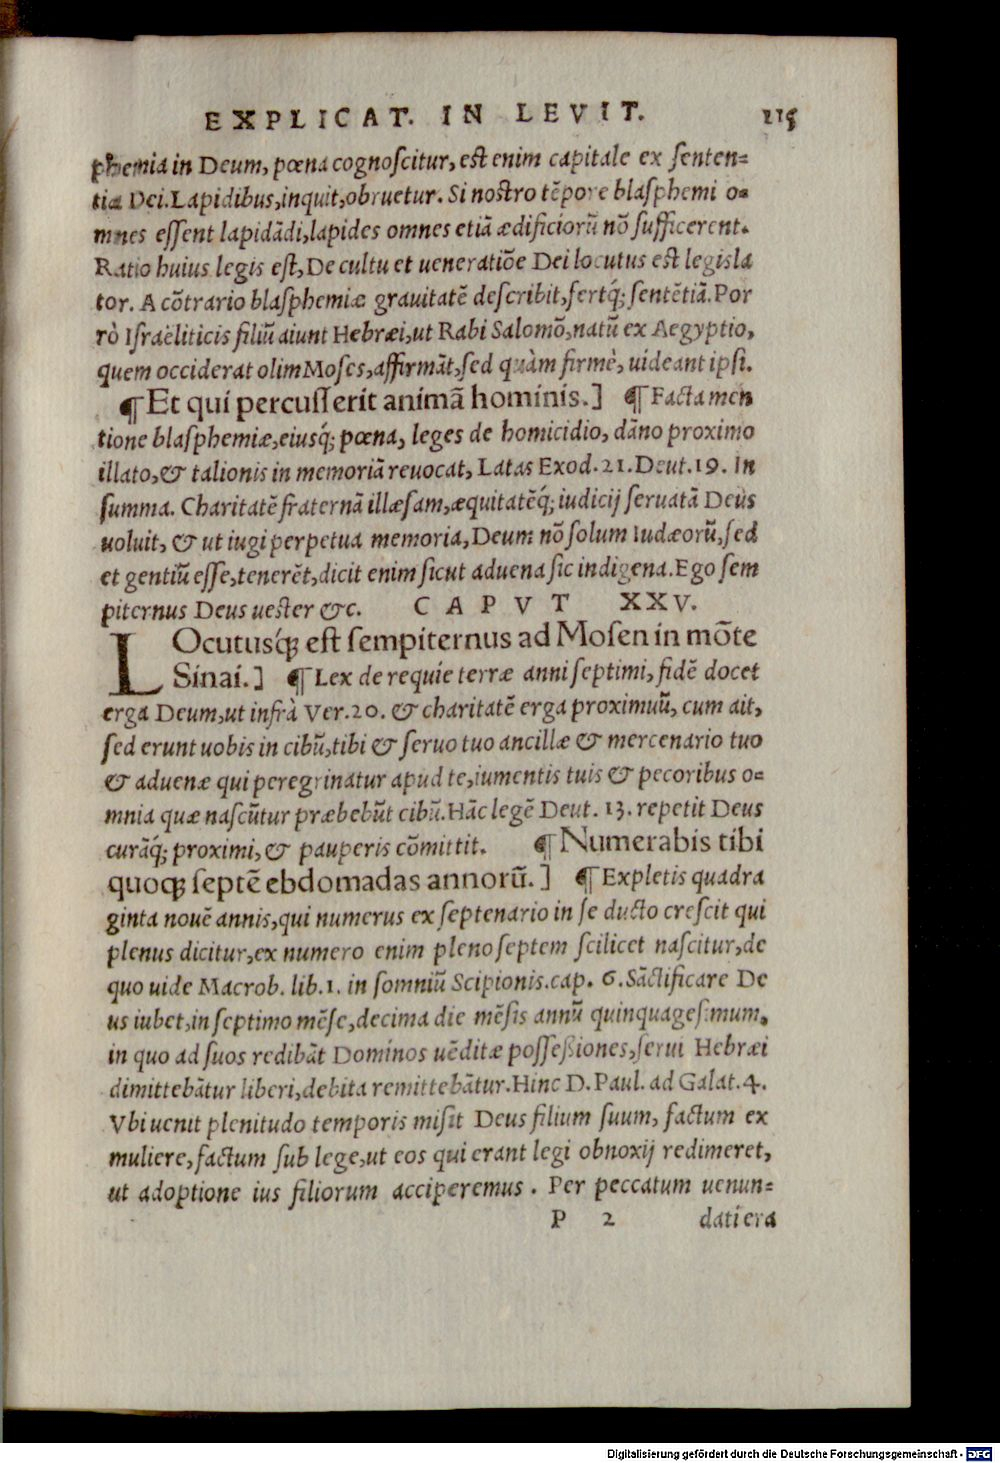 EXPLICAT. IN LEVIT. 115
phemia in Deum, pœna cognoscitur, est enim capitale ex senten=
tia Dei. Lapidibus, inquit, obruetur. Si nostro tẽpore blasphemi o=
mnes essent lapidãdi, lapides omnes etiã ædificiorũ nõ sufficerent.
Ratio huius legis est, De cultu et ueneratiõe Dei locutus est legisla
tor. A cõtrario blasphemiæ grauitatẽ describit, fertq́; sentẽtiã. Por
rò Israëliticis filiũ aiunt Hebræi, ut Rabi Salomõ, natũ ex Aegyptio,
quem occiderat olim Moses, affirmãt, sed quàm firmè, uideant ipsi.
¶ Et qui percusserit animã hominis.] ¶ Facta men
tione blasphemiæ, eiusq́; pœnæ, leges de homicidio, dãno proximo
illato, & talionis in memoriã reuocat, Latas Exod. 21. Deut. 19. In
summa. Charitatẽ fraternã illæsam, æquitatẽq́; iudicij seruatã Deus
uoluit, & ut iugi perpetua memoria, Deum nõ solum Iudæorũ, sed
et gentiũ esse, tenerẽt, dicit enim sicut aduena sic indigena. Ego sem
piternus Deus uester &c. CAPVT XXV.
LOcutusq́; est sempiternus ad Mosen in mõte
Sinai.] ¶ Lex de requie terræ anni septimi, fidẽ docet
erga Deum, ut infrà Ver. 20. & charitatẽ erga proximuũ, cum ait,
sed erunt uobis in cibũ, tibi & seruo tuo ancillæ & mercenario tuo
& aduenæ qui peregrinatur apud te, iumentis tuis & pecoribus o=
mnia quæ nascũtur præbebũt cibũ. Hãc legẽ Deut. 13. repetit Deus
curãq́; proximi, & pauperis cõmittit. ¶ Numerabis tibi
quoq; septẽ ebdomadas annorũ.] ¶ Expletis quadra
ginta nouẽ annis, qui numerus ex septenario in se ducto crescit qui
plenus dicitur, ex numero enim pleno septem scilicet nascitur, de
quo uide Macrob. lib. 1. in somniũ Scipionis. cap. 6. Sãctificare De
us iubet, in septimo mẽse, decima die mẽsis annũ quinquagesimum,
in quo ad suos redibãt Dominos uẽditæ possessiones, serui Hebræi
dimittebãtur liberi, debita remittebãtur. Hinc D. Paul. ad Galat. 4.
Vbi uenit plenitudo temporis misit Deus filium suum, factum ex
muliere, factum sub lege, ut eos qui erant legi obnoxij redimeret,
ut adoptione ius filiorum acciperemus. Per peccatum uenun=
P 2 dati era
Digitalisierung gefördert durch die Deutsche Forschungsgemeinschaft - DFG